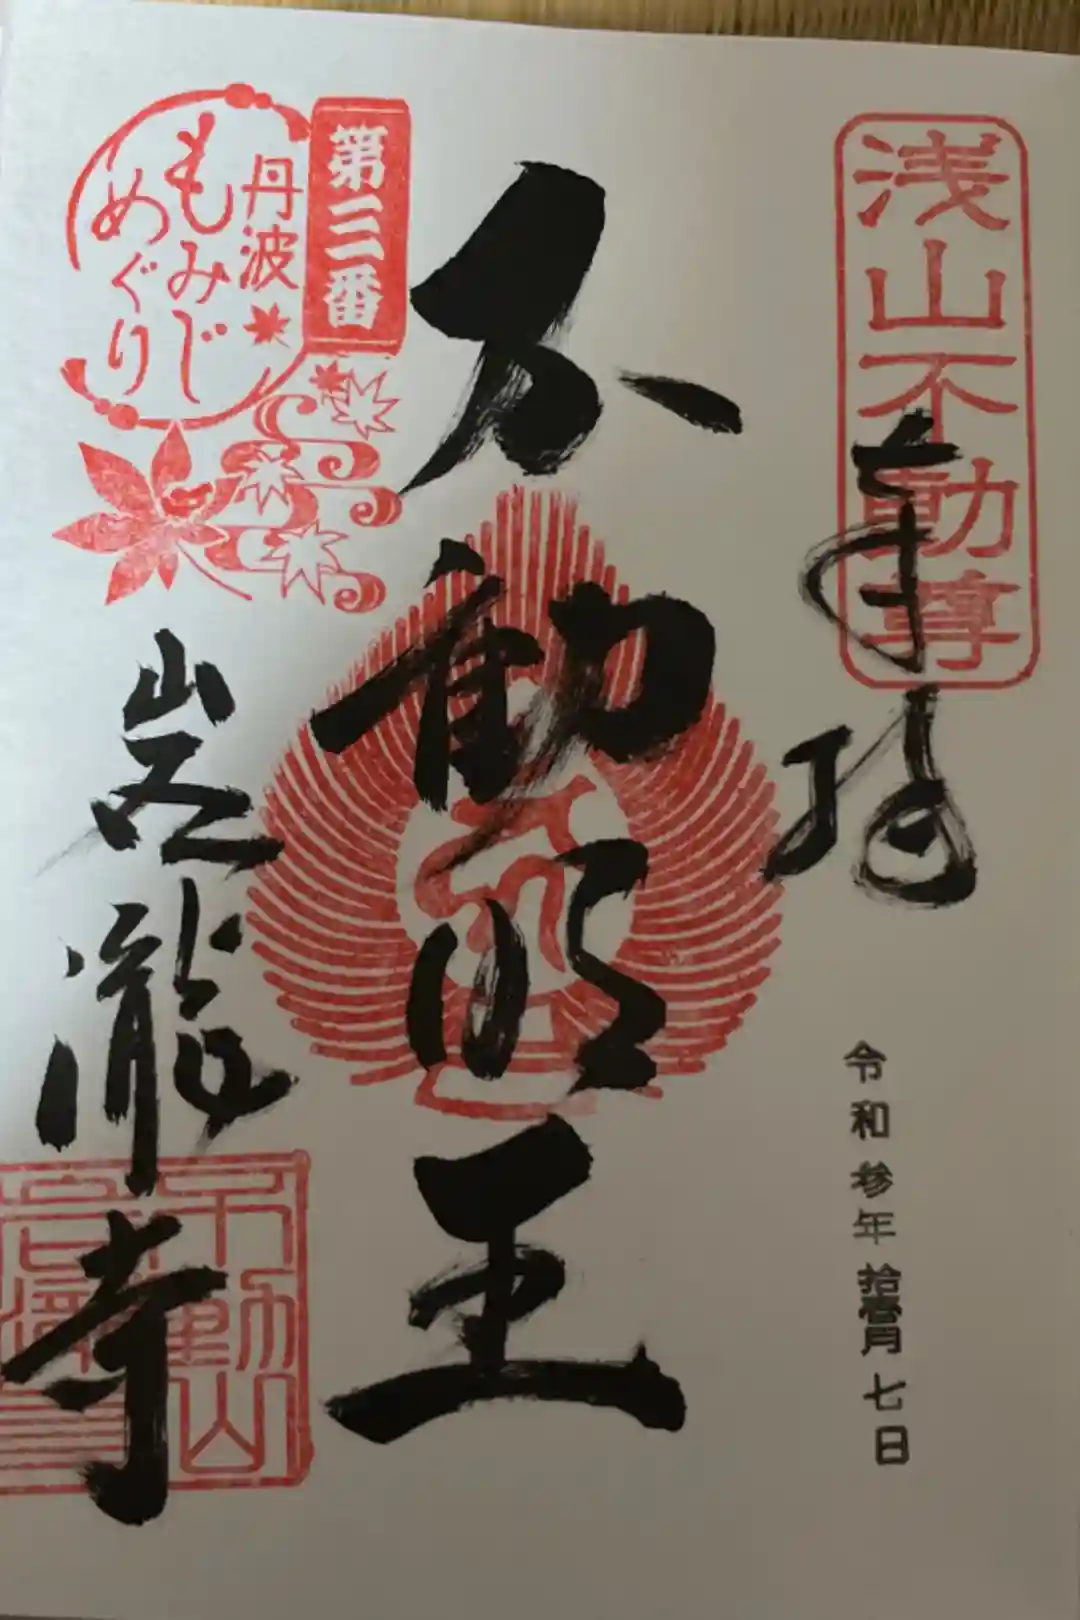 浅山不動尊
奉拝
令和参年拾壹月七日
不動明王
第三番
丹波
もみじ
めぐり
岩瀧寺
不動山